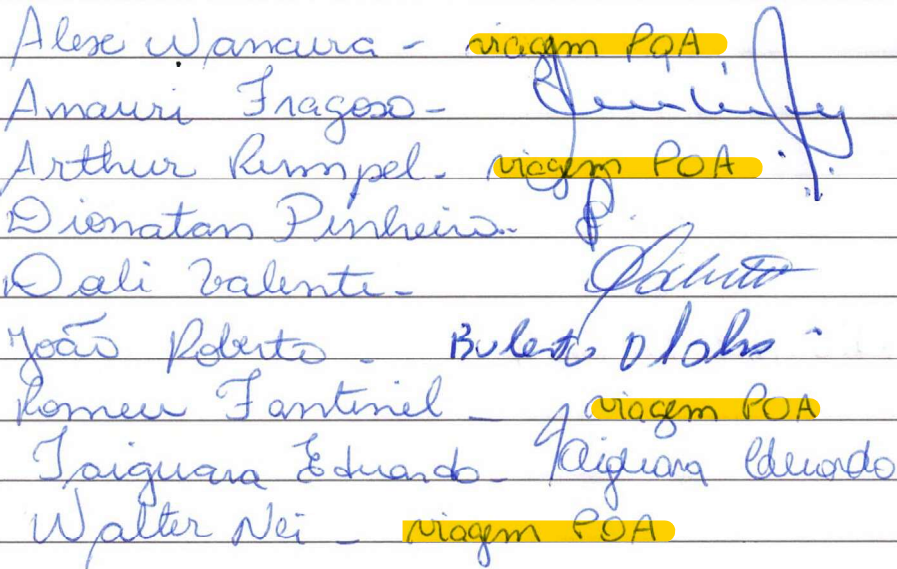 Alexe Wancura - viagem POA
Amauri Fragoso -
Arthur Rumpel - viagem POA
Dionatan Pinheiro -
Dali Valente -
João Roberto -
Romeu Fantinel - viagem POA
Taiguara Eduardo - Taiguara Eduardo
Walter Nei - viagem POA